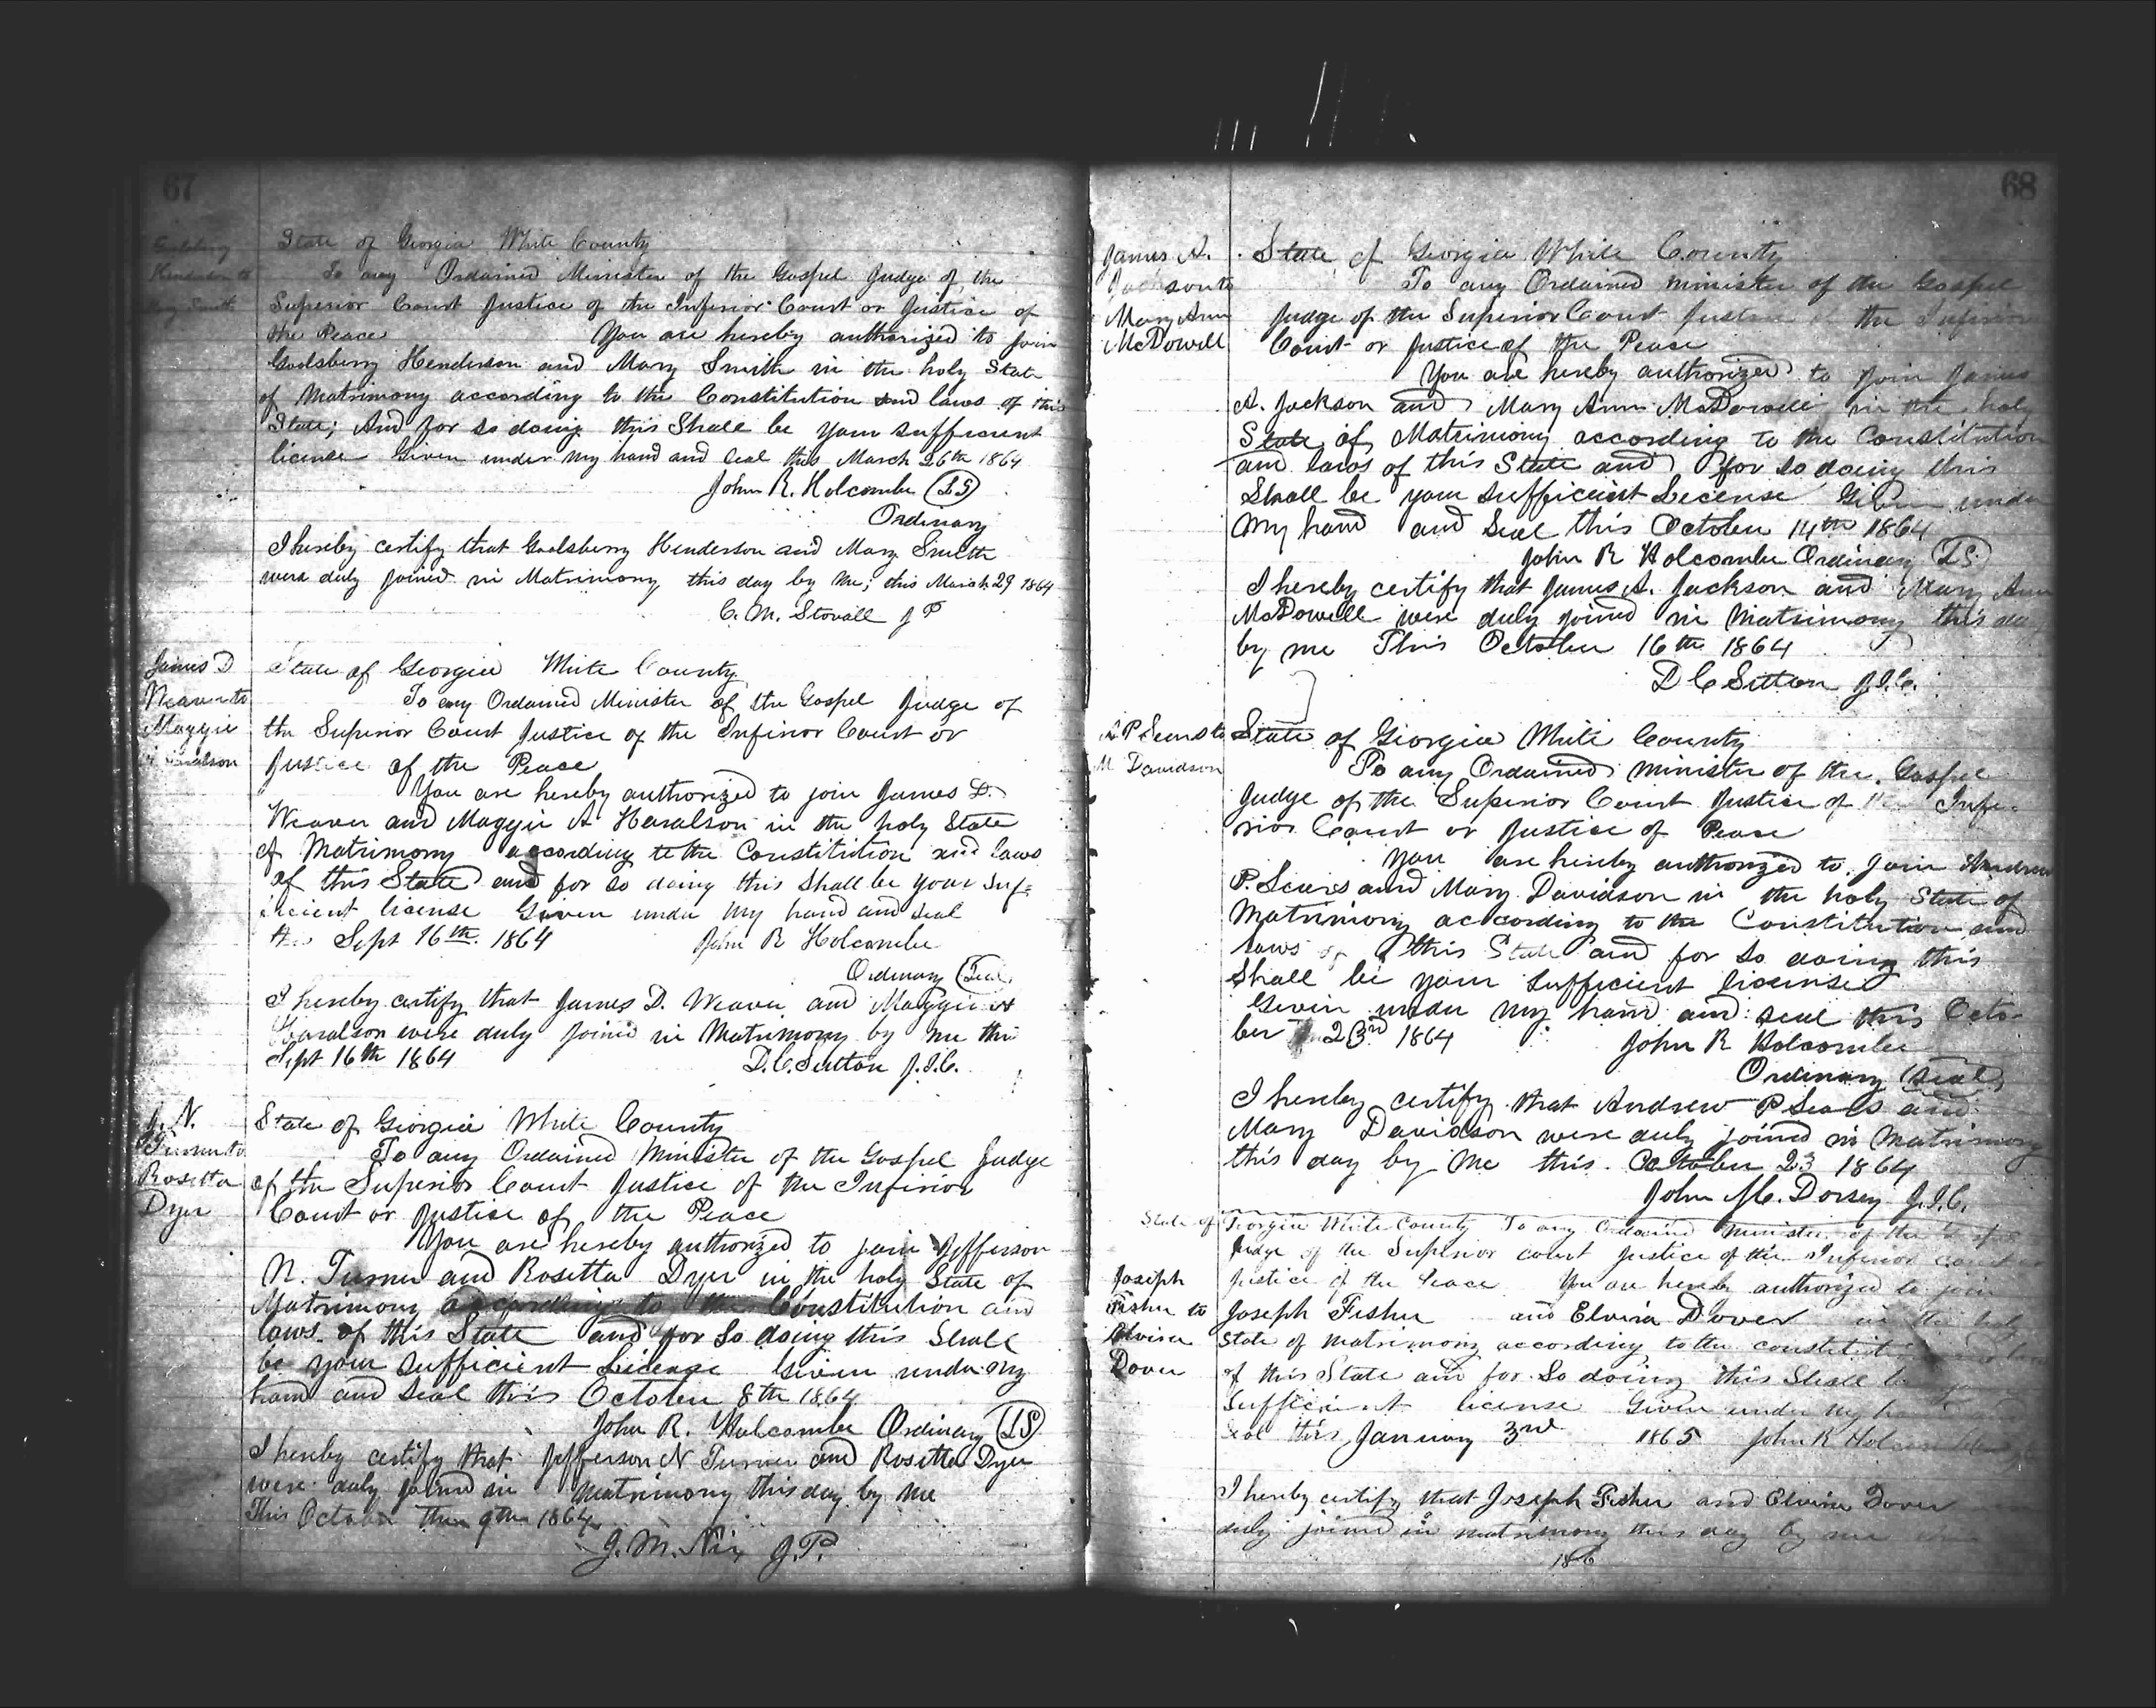 67
Goolsberry
Henderson to
Mary Smith
State of Georgia White County
To any Ordained Minister of the Gospel Judge of the
Superior Court Justice of the Inferior Court or Justice of
the Peace You are hereby authorized to join
Goolsberry Henderson and Mary Smith in the holy State
of Matrimony according to the Constitution and laws of this
State; And for so doing this Shall be your sufficient
license Given under my hand and seal this March 26th 1864
John R. Holcombe (LS)
Ordinary
I hereby certify that Goolsberry Henderson and Mary Smith
were duly joined in Matrimony this day by me; this March 29 1864
C. M. Stovall J P
James D
Weaver to
Maggie
Haralson
State of Georgia White County
To any Ordained Minister of the Gospel Judge of
the Superior Court Justice of the Inferior Court or
Justice of the Peace
You are hereby authorized to join James D.
Weaver and Maggie A Haralson in the holy State
of Matrimony according to the Constitution and laws
of this State and for so doing this shall be your suf=
ficient license Given under my hand and seal
this Sept 16th. 1864 John R Holcombe
Ordinary (Seal)
I hereby certify that James D. Weaver and Maggie A
Haralson were duly joined in Matrimony by me this
Sept 16th 1864 D. C. Sutton J.I.C.
J. N.
Turner to
Rosetta
Dyer
State of Georgia White County
To any Ordained Minister of the Gospel Judge
of the Superior Court Justice of the Inferior
Court or Justice of the Peace
You are hereby authorized to join Jefferson
N. Turner and Rosetta Dyer in the holy State of
Matrimony according to the Constitution and
laws of this State and for so doing this Shall
be your sufficient License Given under my
hand and seal this October 8th 1864
John R. Holcombe Ordinary (LS)
I hereby certify that Jefferson N Turner and Rosetta Dyer
were duly joined in Matrimony this day by me
This October the 9th 1864
J. M. Nix J.P.
68
James A.
Jackson to
Mary Ann
McDowell
State of Georgia White County
To any Ordained minister of the Gospel
Judge of the Superior Court Justice of the Inferior
Court or Justice of the Peace
You are hereby authorized to join James
A. Jackson and Mary Ann McDowell in the holy
State of Matrimony according to the Constitution
and laws of this State and for so doing this
Shall be your sufficient License Given under
my hand and seal this October 14th 1864
John R Holcombe Ordinary (LS)
I hereby certify that James A. Jackson and Mary Ann
McDowell were duly joined in Matrimony this day
by me This October 16th 1864
D C Sutton J.I.C.
A. P. Sears to
M Davidson
State of Georgia White County
To any Ordained Minister of the Gospel
Judge of the Superior Court Justice of the Infe-
rior Court or Justice of Peace
You are hereby authorized to join Andrew
P. Sears and Mary Davidson in the holy State of
Matrimony according to the Constitution and
laws of this State and for so doing this
Shall be your sufficient license
Given under my hand and seal this Octo-
ber 23rd 1864 John R Holcombe
Ordinary (Seal)
I hereby certify that Andrew P Sears and
Mary Davidson were duly joined in Matrimony
this day by me this October 23 1864
John M. Dorsey J.I.C.
Joseph
Fisher to
Elvira
Dover
State of Georgia White County To any Ordained Minister of the
Judge of the Superior court Justice of the Inferior court
Justice of the Peace You are hereby authorized to join
Joseph Fisher and Elvira Dover in the holy
State of matrimony according to the constitution
of this State and for so doing this Shall be
sufficient license Given under my hand
Seal this January 3rd 1865 John R Holcombe
I hereby certify that Joseph Fisher and Elvira Dover
duly joined in matrimony this day by me
186